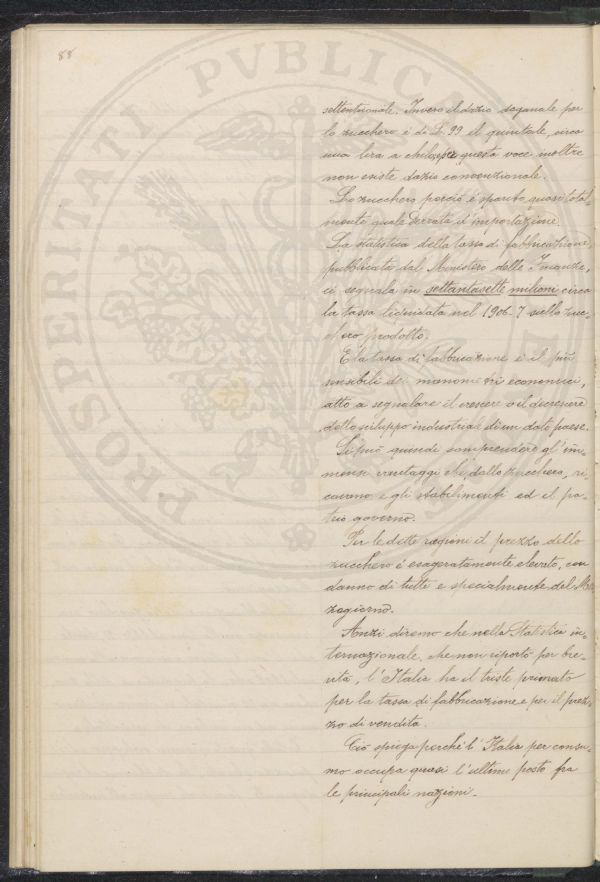 88
PROSPERITATI PVBLICAE
settentrionale. Invero il dazio doganale per
lo zucchero è di L. 99 il quintale, circa
una lira a chilo, e per questa voce inoltre
non esiste dazio convenzionale.
Lo zucchero perciò è sparito quasi total-
mente quale derrata d'importazione.
La statistica della tassa di fabbricazione,
pubblicata dal Ministero delle Finanze,
ci segnala in settantasette milioni circa
la tassa liquidata nel 1906-7 sullo zuc-
chero prodotto.
E la tassa di fabbricazione è il più
sensibili dei manometri economici,
atto a segnalare il crescere o il decrescere
dello sviluppo industriale di un dato paese.
Si può quindi comprendere gl'im-
mensi vantaggi che, dallo zucchero, ri-
cavano e gli stabilimenti ed il pa-
trio governo.
Per le dette ragioni il prezzo dello
zucchero è esageratamente elevato, con
danno di tutti e specialmente del Mez-
zogiorno.
Anzi diremo che nella Statistica in-
ternazionale, che non riporto per bre-
vità, l'Italia ha il triste primato
per la tassa di fabbricazione e per il prez-
zo di vendita.
Ciò spiega perché l'Italia per consu-
mo occupa quasi l'ultimo posto fra
le principali nazioni.